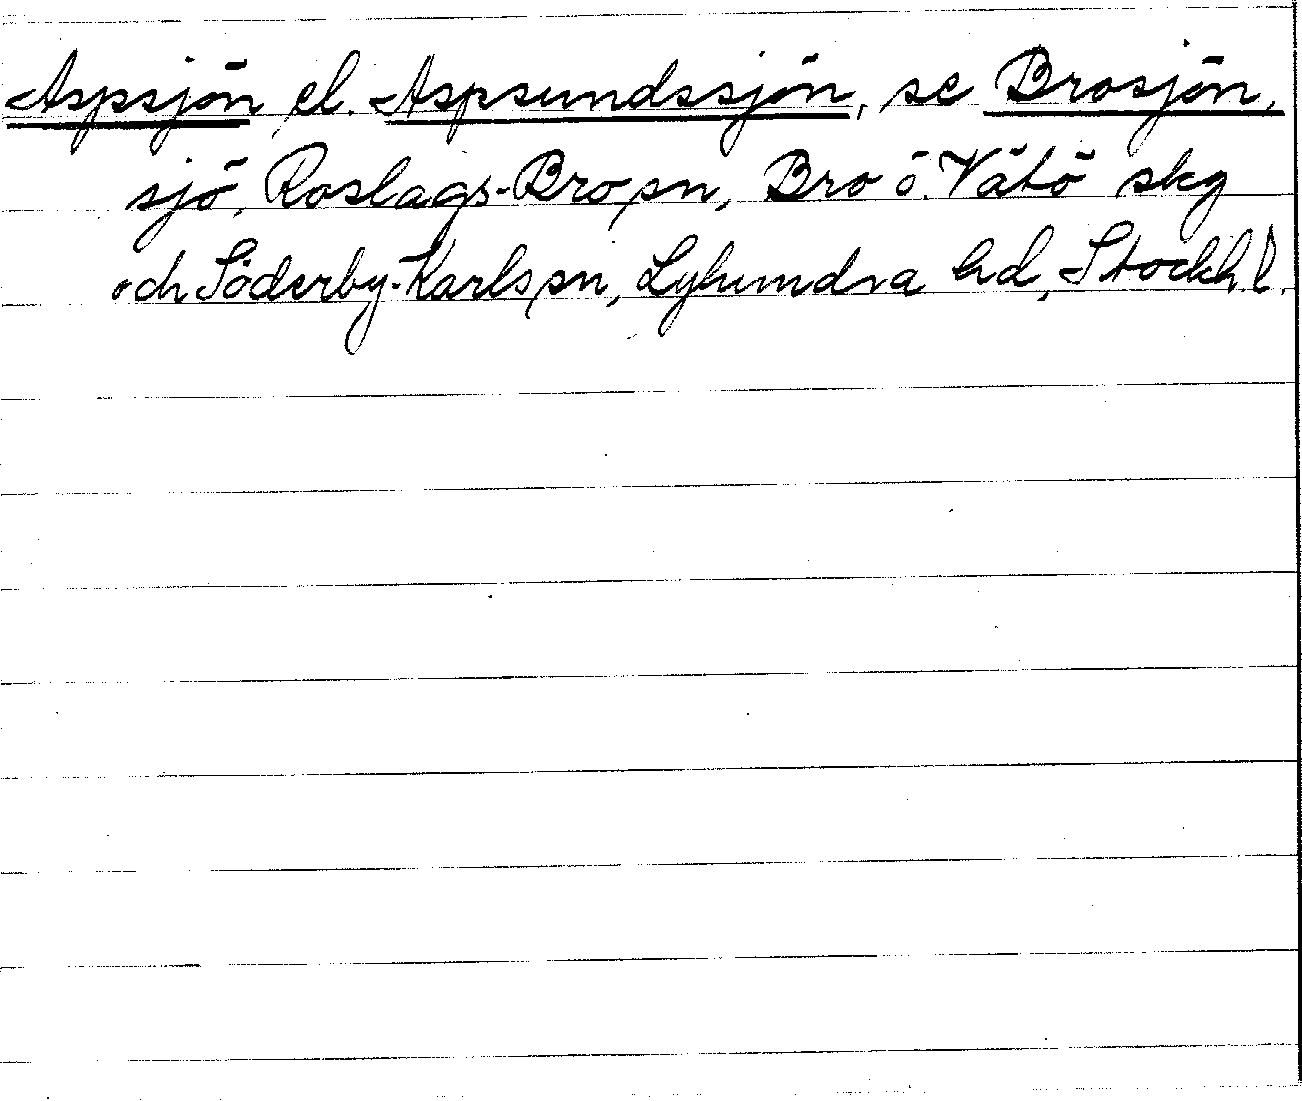 Aspsjön el. Aspsundssjön, se Brosjön,
sjö, Roslags-Bro sn, Bro o. Vätö skg
och Söderby-Karls sn, Lyhundra hd, Stockh. l.